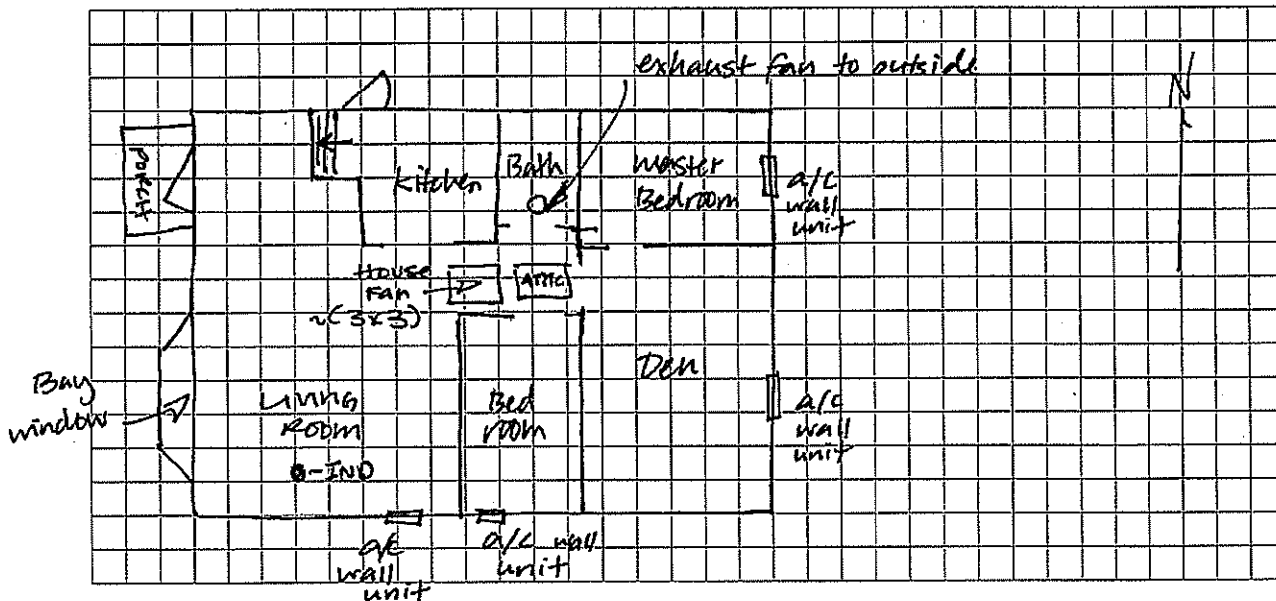 exhaust fan to outside
N
PORCH
Kitchen
Bath
Master
Bedroom
a/c
wall
unit
House
Fan
~(3x3)
ATTIC
Bay
window
Living
Room
-IND
Bed
room
Den
a/c
wall
unit
a/c
wall
unit
a/c wall
unit